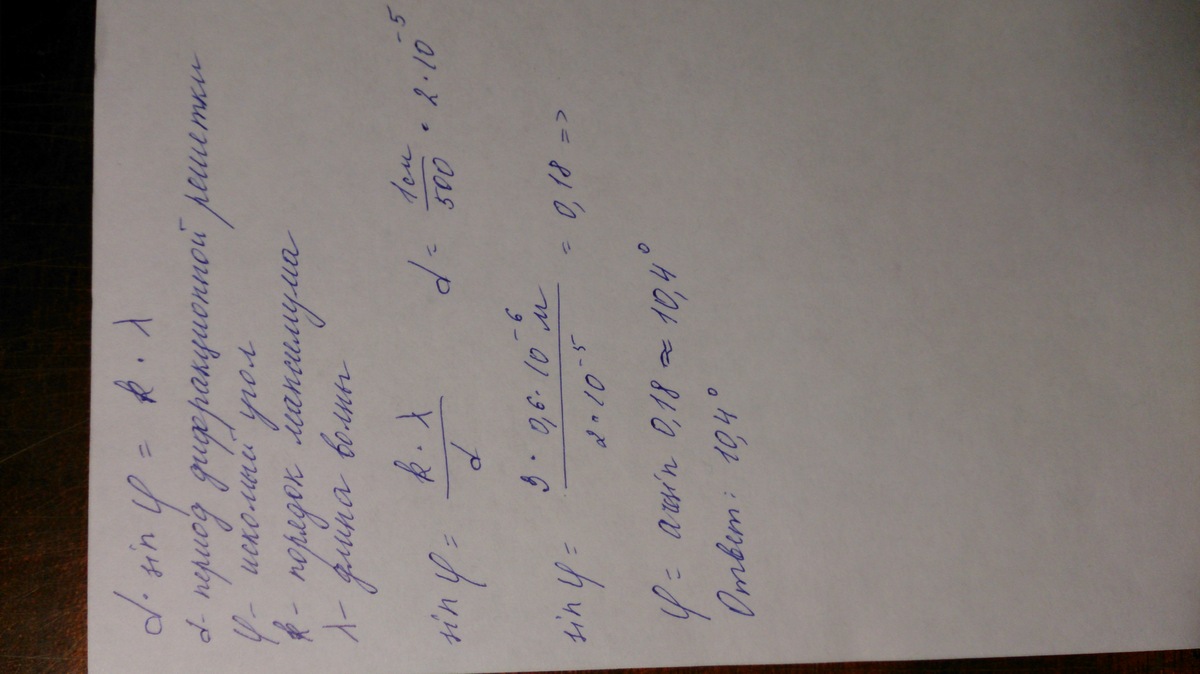 d · sin φ = k · λ
d - период дифракционной решетки
φ - искомый угол
k - порядок максимума
λ - длина волны
sin φ = k · λ / d d = 1см / 500 = 2 · 10⁻⁵
sin φ = 3 · 0,6 · 10⁻⁶ м / 2 · 10⁻⁵ = 0,18 =>
φ = arcsin 0,18 ≈ 10,4°
Ответ: 10,4°